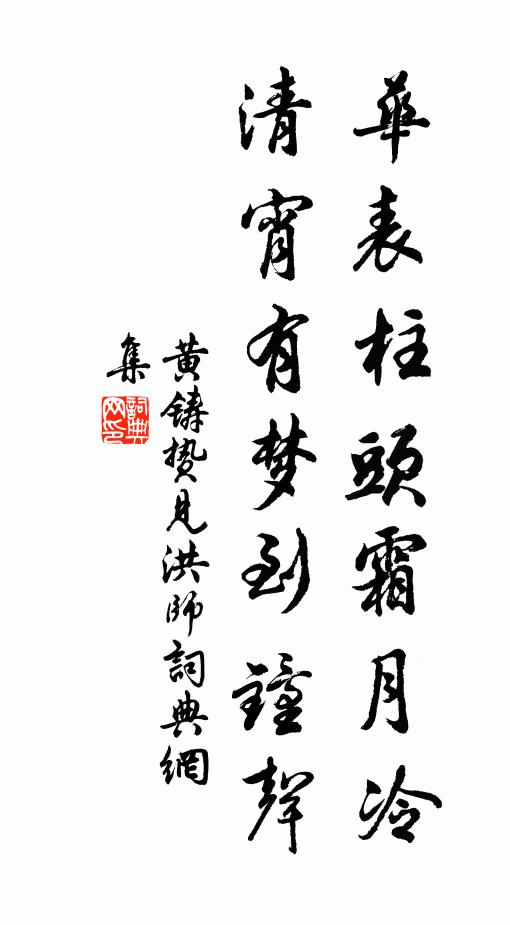 華表柱頭霜月冷
清宵有梦到鐘聲
黄鑄贄見洪師詞典網
集
詞典网印